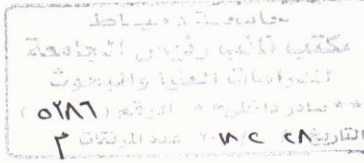 جامعة دمياط
مكتب نائب رئيس الجامعة
للدراسات العليا والبحوث
صادر داخلى الرقم (٥٢٨٦)
التاريخ ٢٨ عدد المرفقات ٣